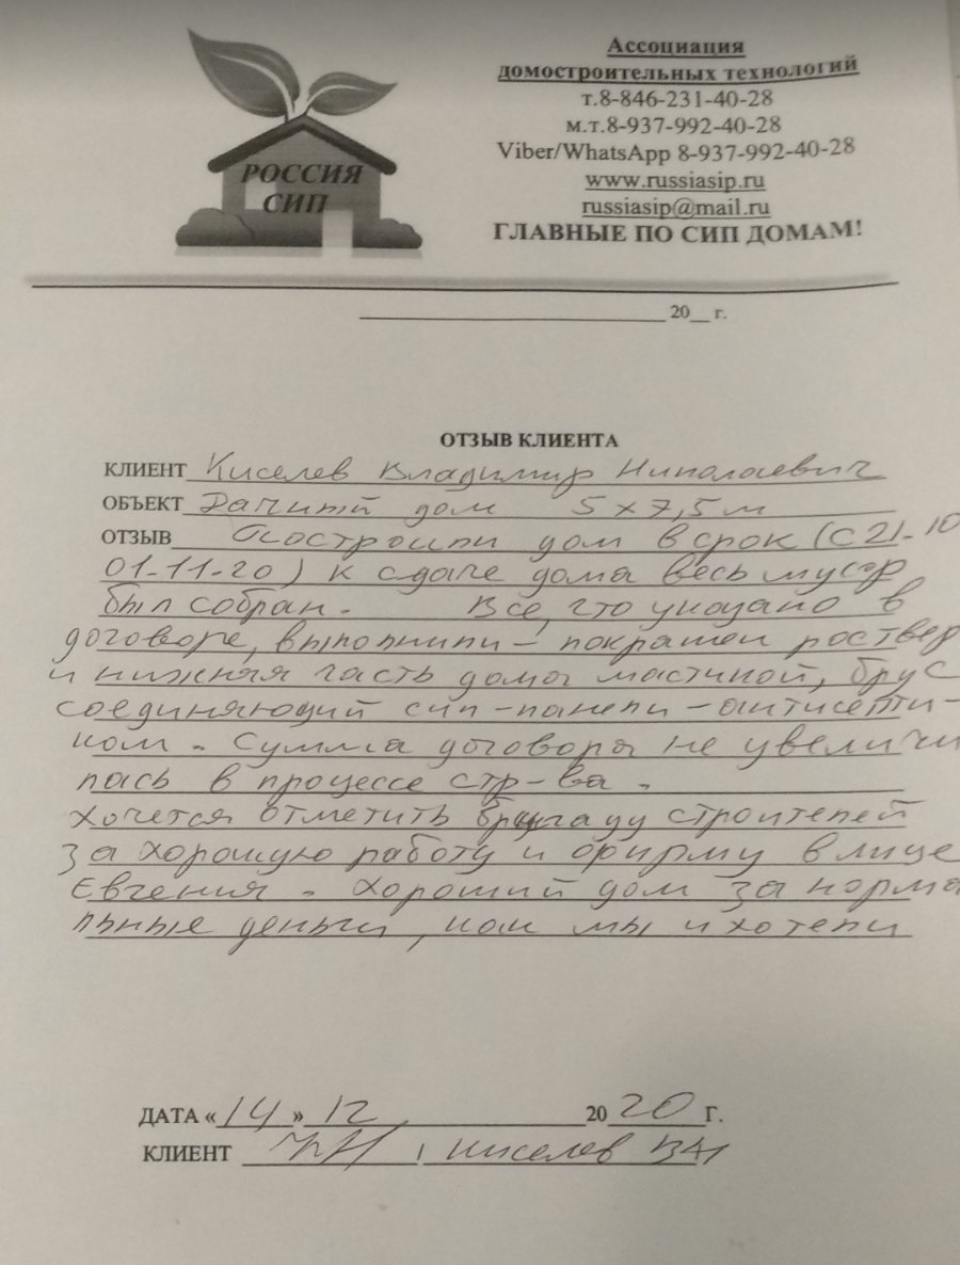 РОССИЯ
СИП
Ассоциация
домостроительных технологий
т.8-846-231-40-28
м.т.8-937-992-40-28
Viber/WhatsApp 8-937-992-40-28
www.russiasip.ru
russiasip@mail.ru
ГЛАВНЫЕ ПО СИП ДОМАМ!
20__ г.
ОТЗЫВ КЛИЕНТА
КЛИЕНТ Киселев Владимир Николаевич
ОБЪЕКТ Дачный дом 5х7,5м
ОТЗЫВ Построили дом в срок (с 21-10
01-11-20) к сдаче дома весь мусор
был собран. Все, что указано в
договоре, выполнили - покрашен роствер
и нижняя часть дома мастикой, брус
соединяющий сип-панели - антисепти-
ком. Сумма договора не увеличи
лась в процессе стр-ва.
Хочется отметить бригаду строителей
за хорошую работу и фирму в лице
Евгения. Хороший дом за норма
льные деньги, как мы и хотели
ДАТА «14» 12 2020 Г.
КЛИЕНТ Киселев ВН